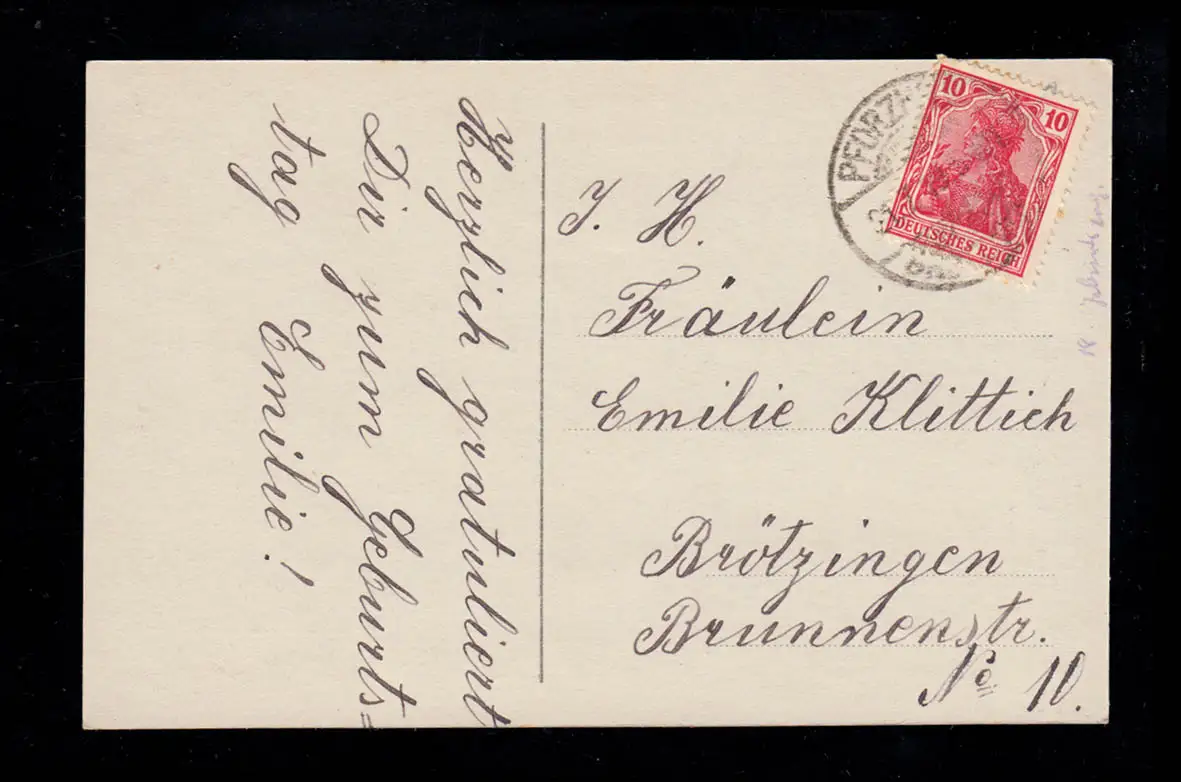 Herzlich gratuliert
Dir zum Geburts=
tag Emilie!
10 10
DEUTSCHES REICH
J. H.
Fräulein
Emilie Klittich
Brötzingen
Brunnenstr.
No 10.